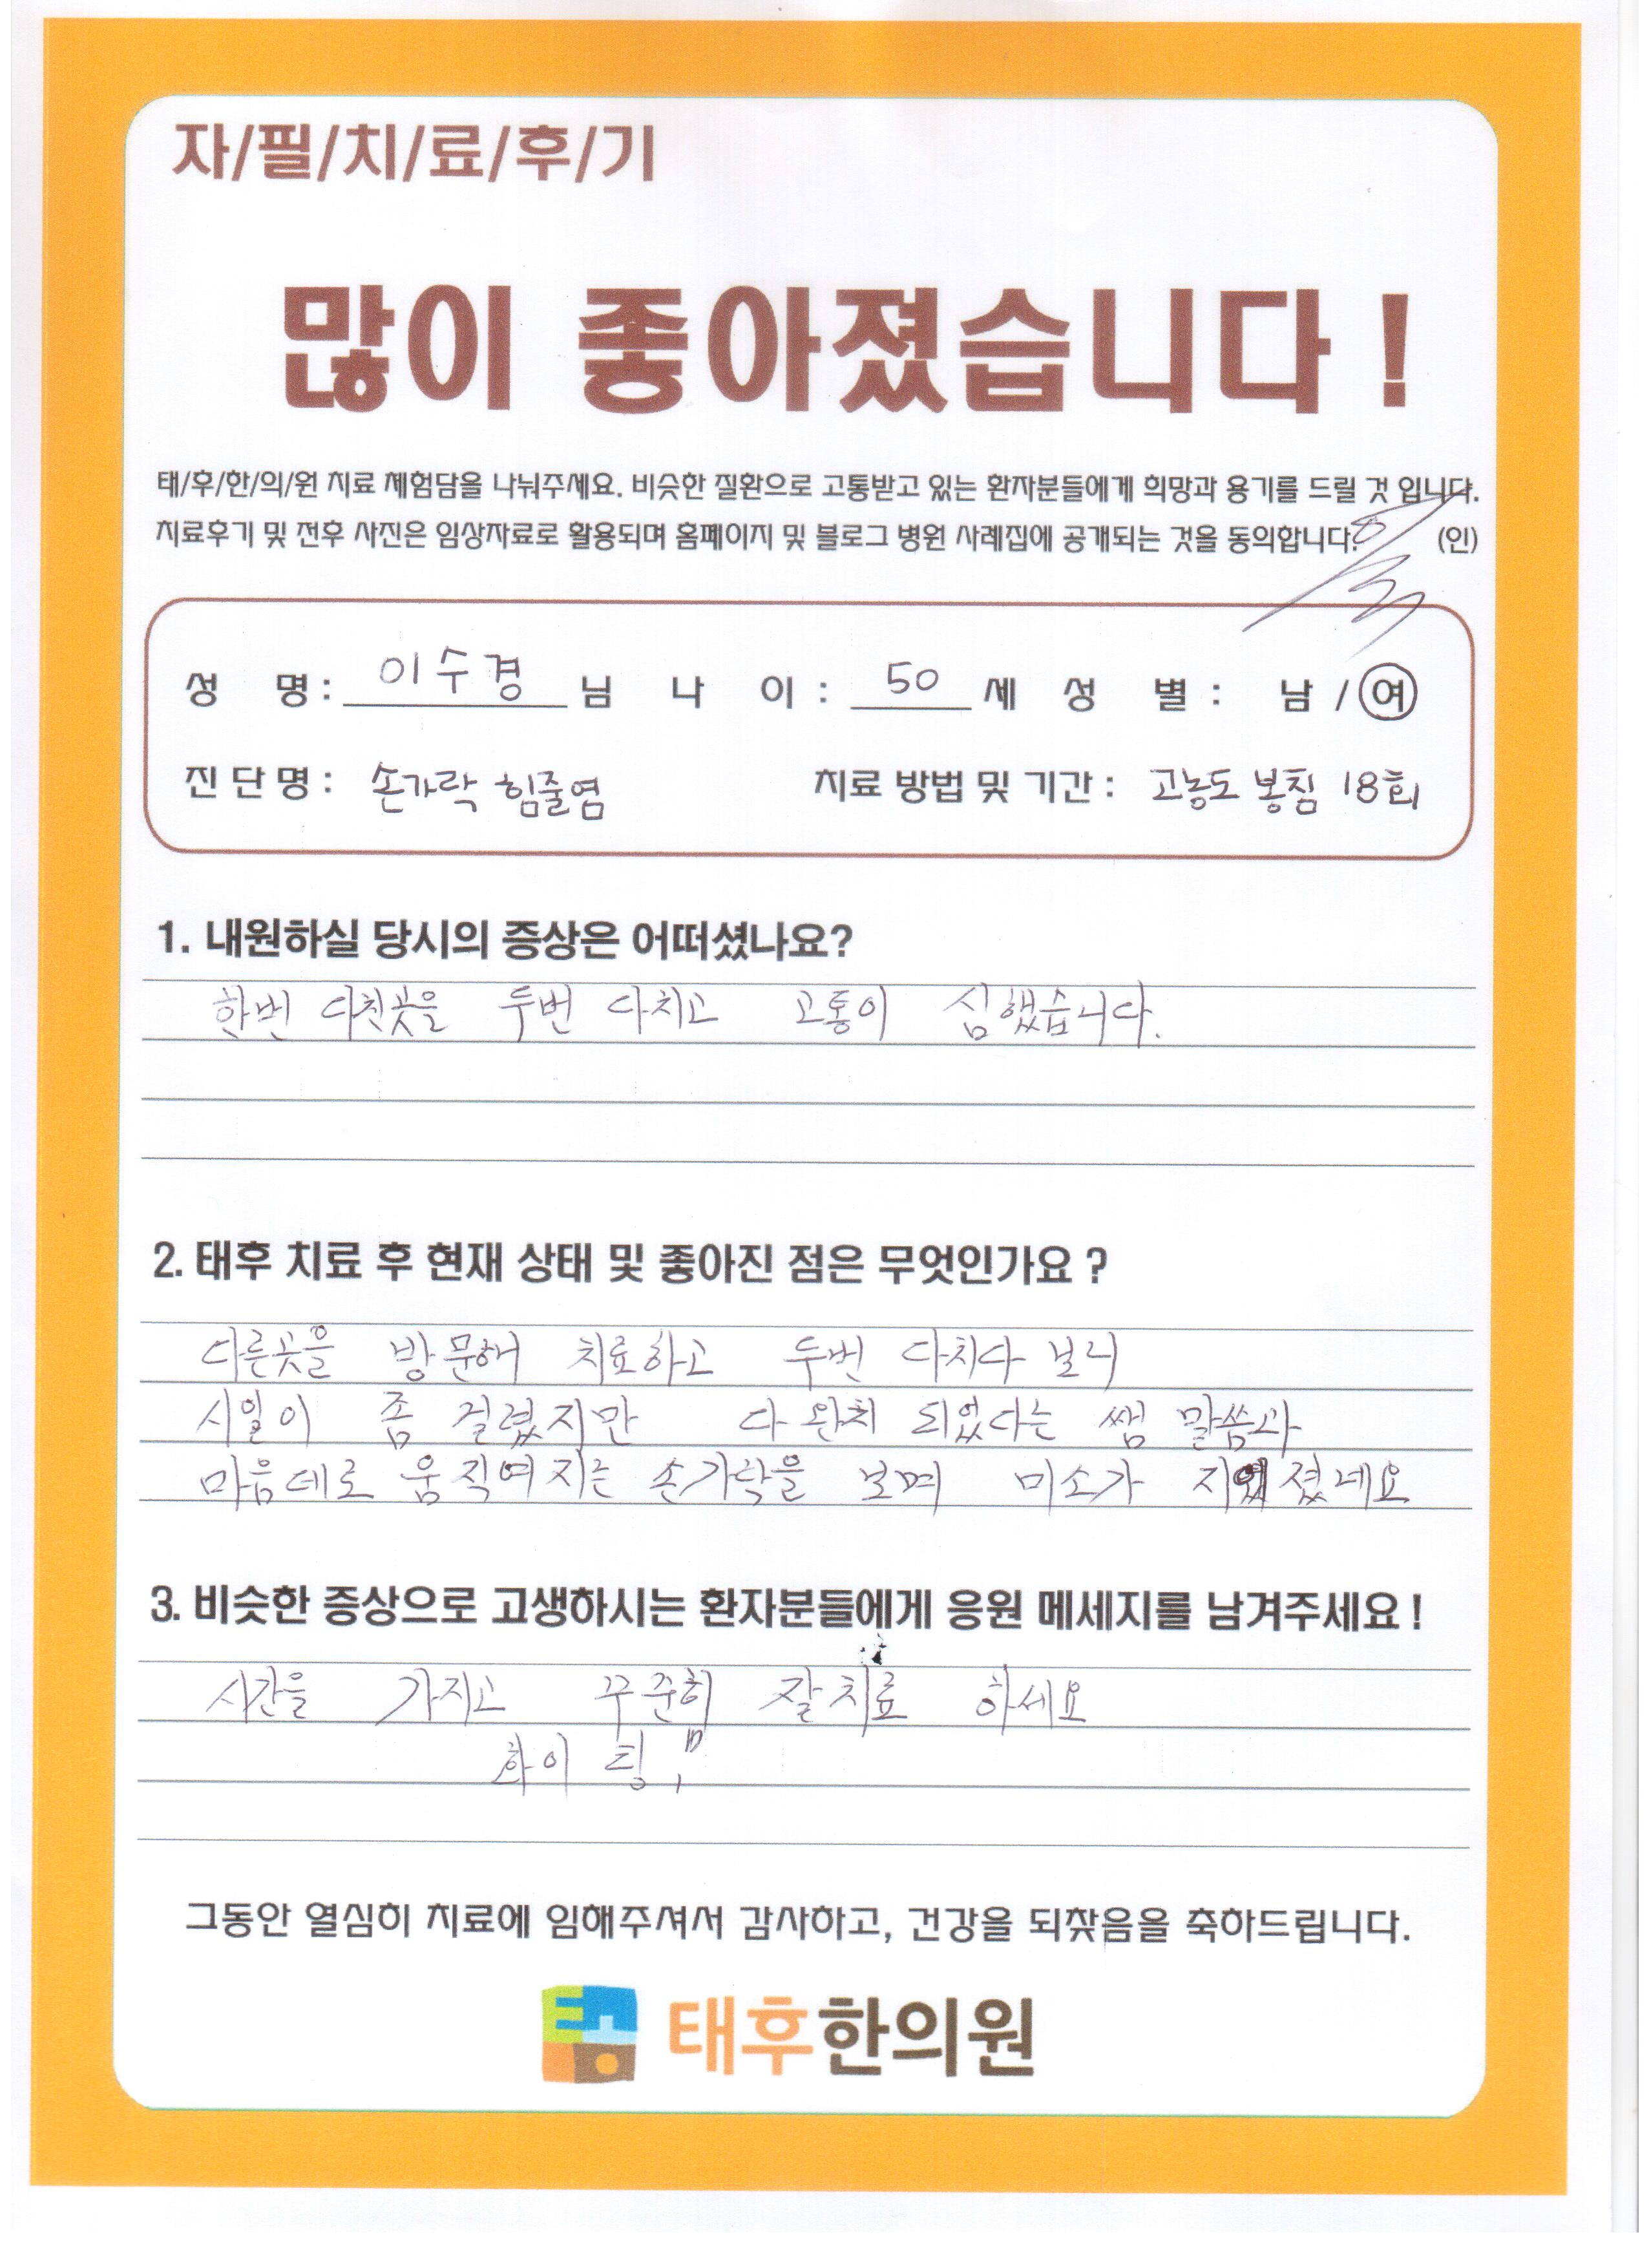 자/필/치/료/후/기
많이 좋아졌습니다 !
태/후/한/의/원 치료 체험담을 나눠주세요. 비슷한 질환으로 고통받고 있는 환자분들에게 희망과 용기를 드릴 것 입니다.
치료후기 및 전후 사진은 임상자료로 활용되며 홈페이지 및 블로그 병원 사례집에 공개되는 것을 동의합니다. (인)
성 명 : 이수경 님 나 이 : 50 세 성 별 : 남 / 여
진 단 명 : 손가락 힘줄염 치료 방법 및 기간 : 고농도 봉침 18회
1. 내원하실 당시의 증상은 어떠셨나요?
한번 다친곳을 두번 다치고 고통이 심했습니다.
2. 태후 치료 후 현재 상태 및 좋아진 점은 무엇인가요 ?
다른곳을 방문해 치료하고 두번 다치다 보니
시일이 좀 걸렸지만 다 완치 되었다는 쌤 말씀과
마음데로 움직여지는 손가락을 보며 미소가
3. 비슷한 증상으로 고생하시는 환자분들에게 응원 메세지를 남겨주세요 !
시간을 가지고 꾸준히 잘치료 하세요
화이팅
그동안 열심히 치료에 임해주셔서 감사하고, 건강을 되찾음을 축하드립니다.
태후한의원